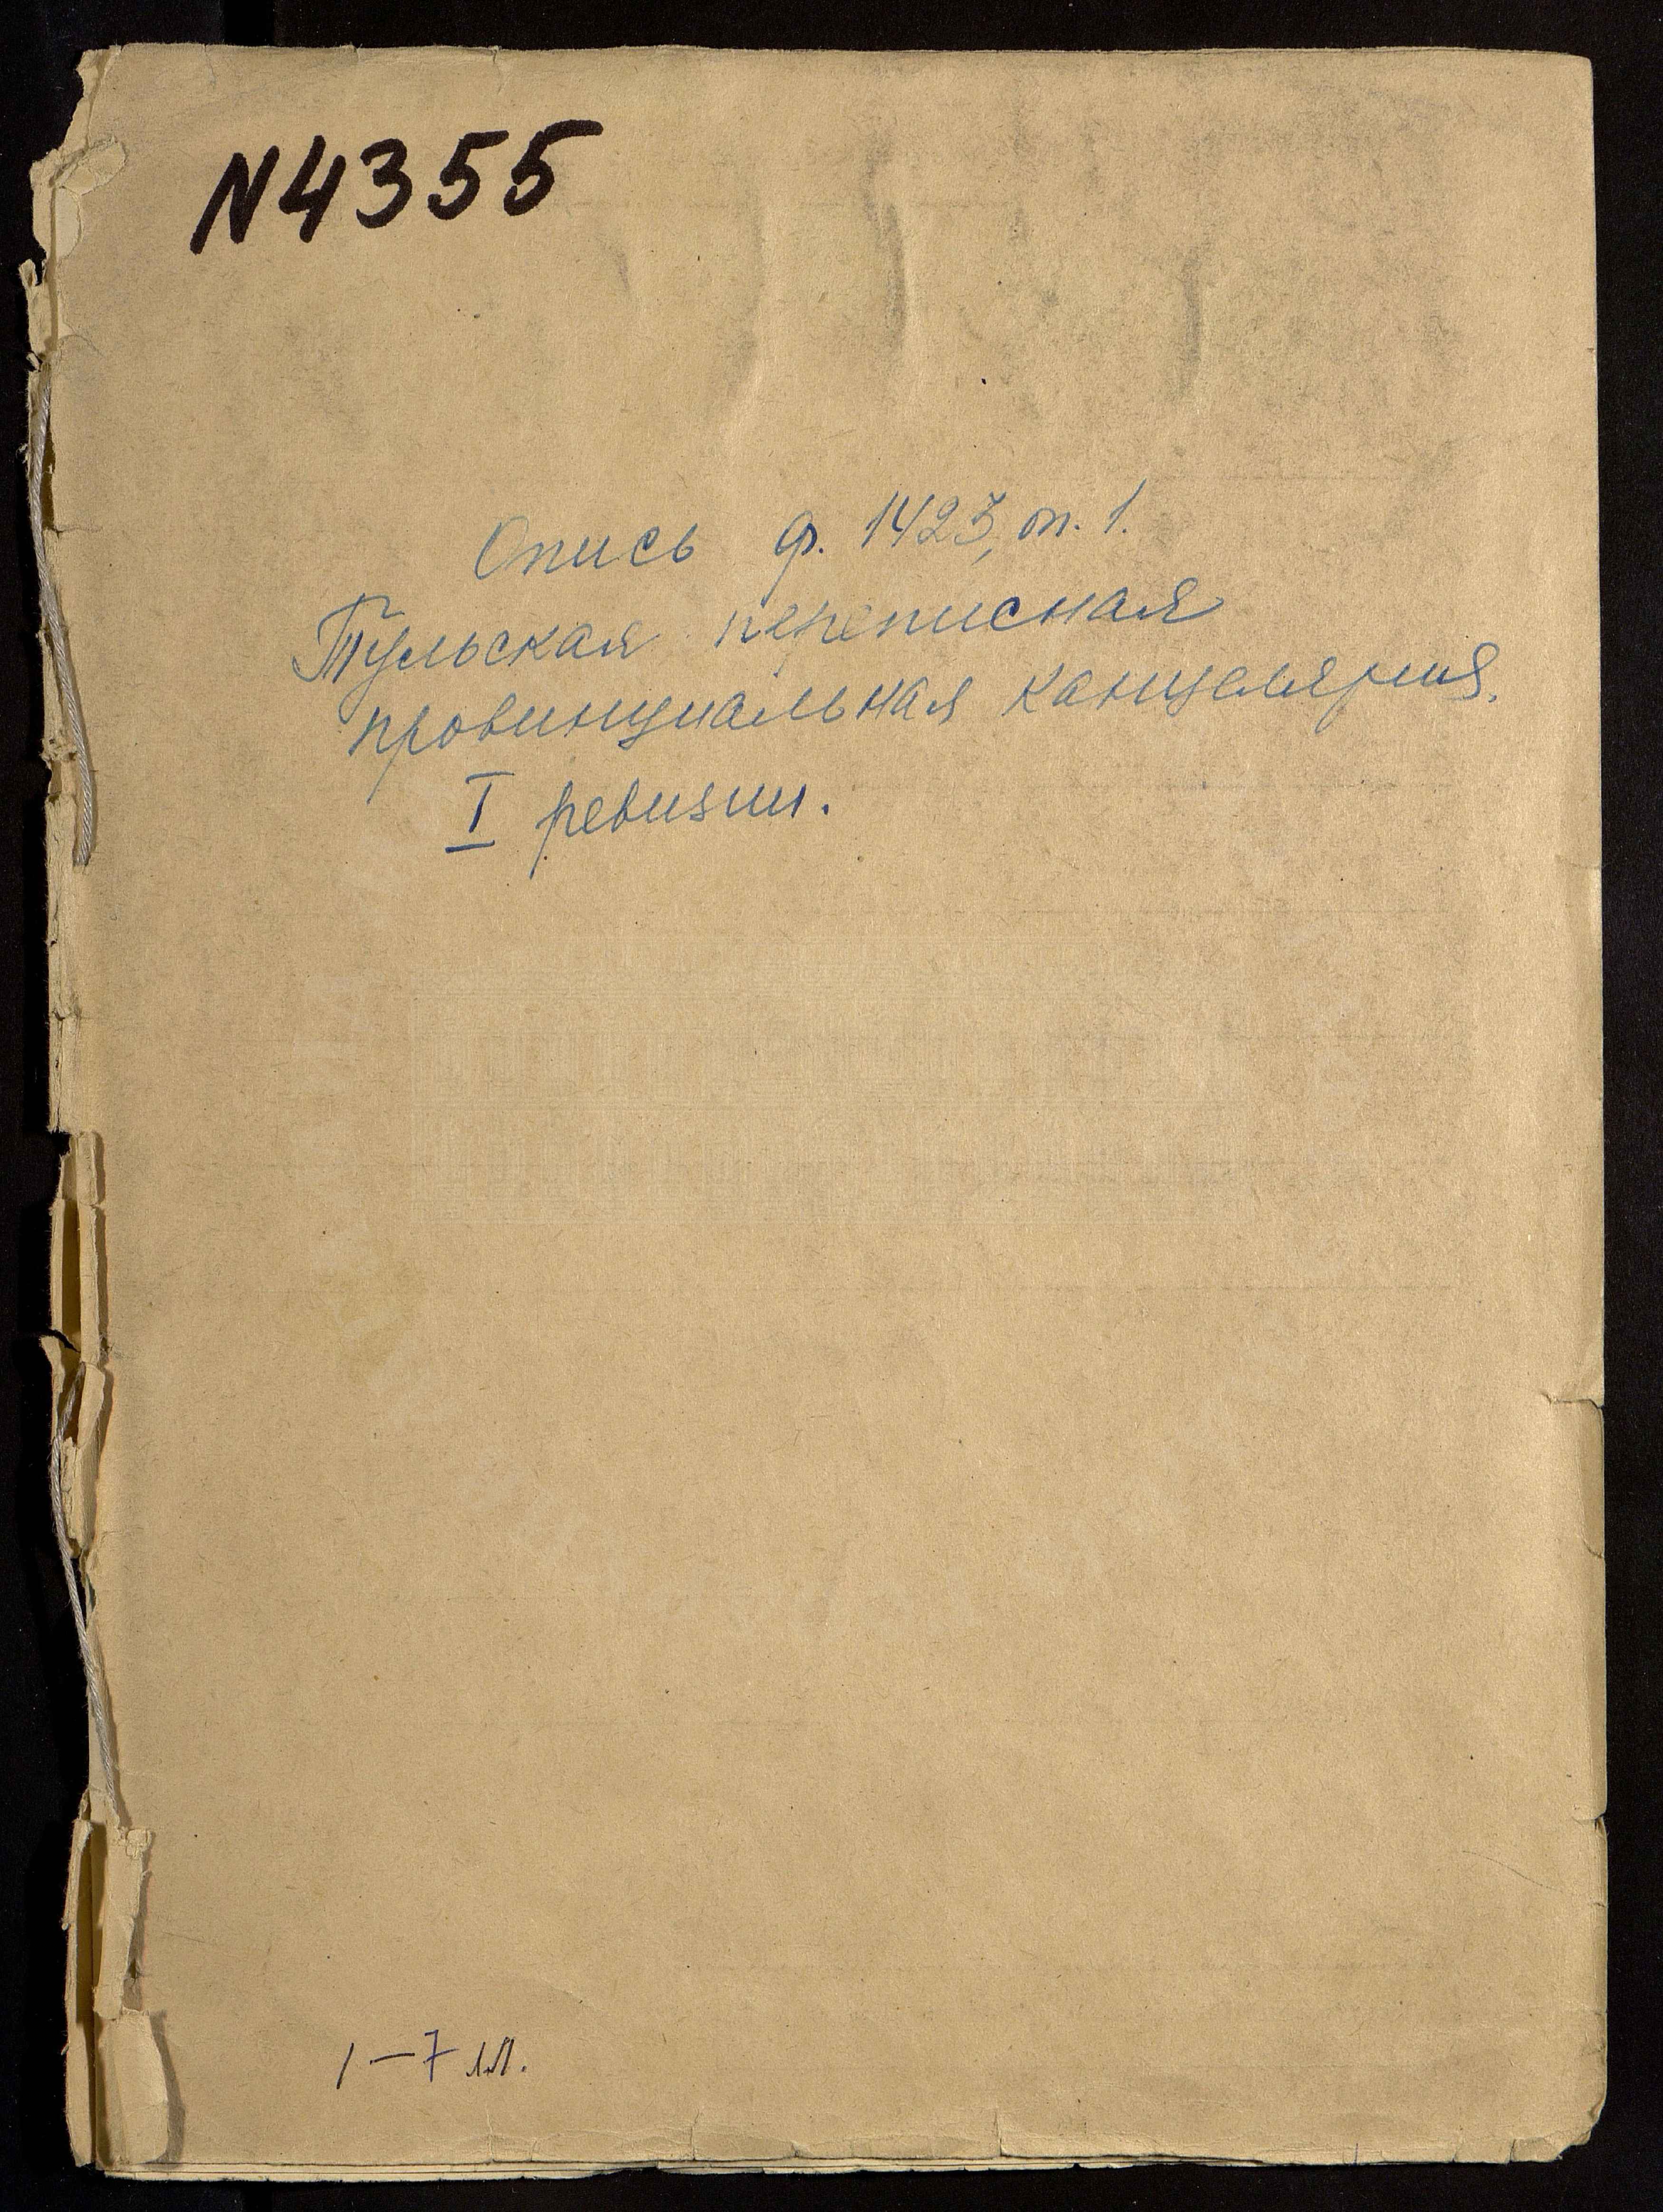 N4355
Опись ф. 1423, оп. 1.
Тульская переписная
провинциальная канцелярия.
I ревизии.
1-7 лл.